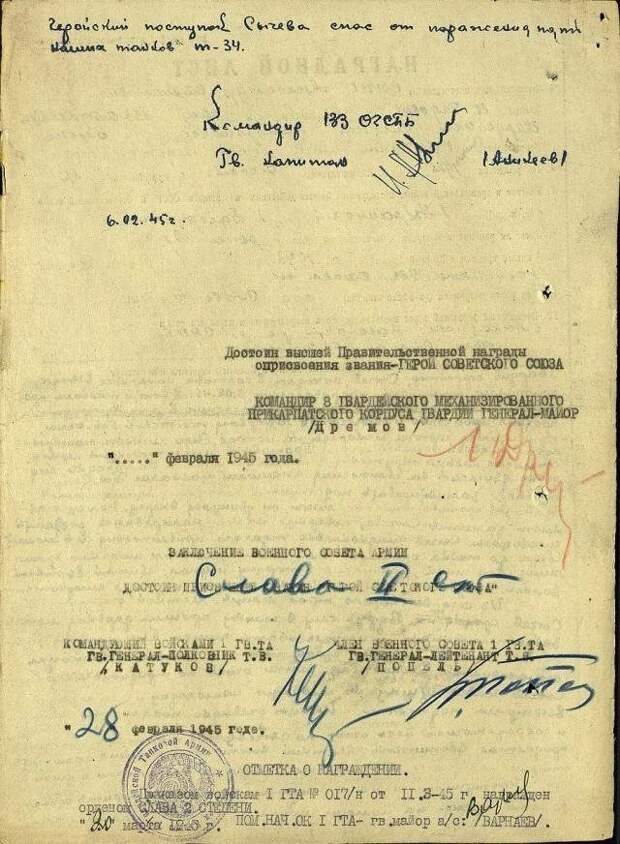 Геройский поступок Сычева спас от поражения пять
наших танков Т-34.
Командир 133 ОГСТБ
Гв. капитан
6.02.45г.
Достоин высшей Правительственной награды
оприсвоения звания-ГЕРОЙ СОВЕТСКОГО СОЮЗА
КОМАНДИР 8 ГВАРДЕЙСКОГО МЕХАНИЗИРОВАННОГО
ПРИКАРПАТСКОГО КОРПУСА ГВАРДИИ ГЕНЕРАЛ-МАЙОР
/Дремов/
"....." февраля 1945 года.
ЗАКЛЮЧЕНИЕ ВОЕННОГО СОВЕТА АРМИИ
ДОСТОИН
Слава II ст
КОМАНДУЮЩИЙ ВОЙСКАМИ 1 ГВ.ТА
ГВ.ГЕНЕРАЛ-ПОЛКОВНИК Т.В.
/КАТУКОВ/
ЧЛЕН ВОЕННОГО СОВЕТА 1 ГВ.ТА
ГВ.ГЕНЕРАЛ-ЛЕЙТЕНАНТ Т.В.
/ПОПЕЛЬ/
"28" февраля 1945 года.
ОТМЕТКА О НАГРАЖДЕНИИ.
Приказом войскам 1 ГТА № 017/н от 11.3-45г. награжден
орденом СЛАВА 2 СТЕПЕНИ.
"20" марта 1945 г. ПОМ.НАЧ.ОК 1 ГТА- гв.майор а/с: /ВАРНАЕВ/.